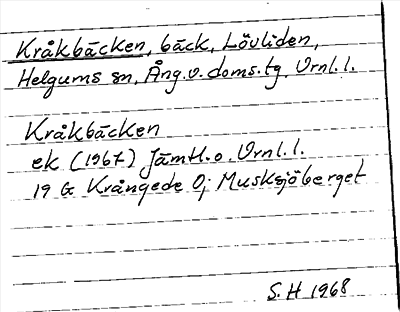 Kråkbäcken, bäck, Lövliden,
Helgums sn, Ång. v. doms. tg. Vrnl. l.
Kråkbäcken
ek (1967) Jämtl. o. Vrnl. l.
19 G Krångede 0j Musksjöberget
S. H 1968